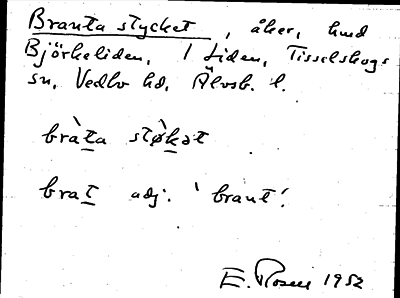 Branta stycket, åker, hmd
Björkeliden, 1 Liden, Tisselskogs
sn, Vedbo hd, Älvsb. l.
bràta støkət
brat adj. 'brant'.
E. Rosell 1952